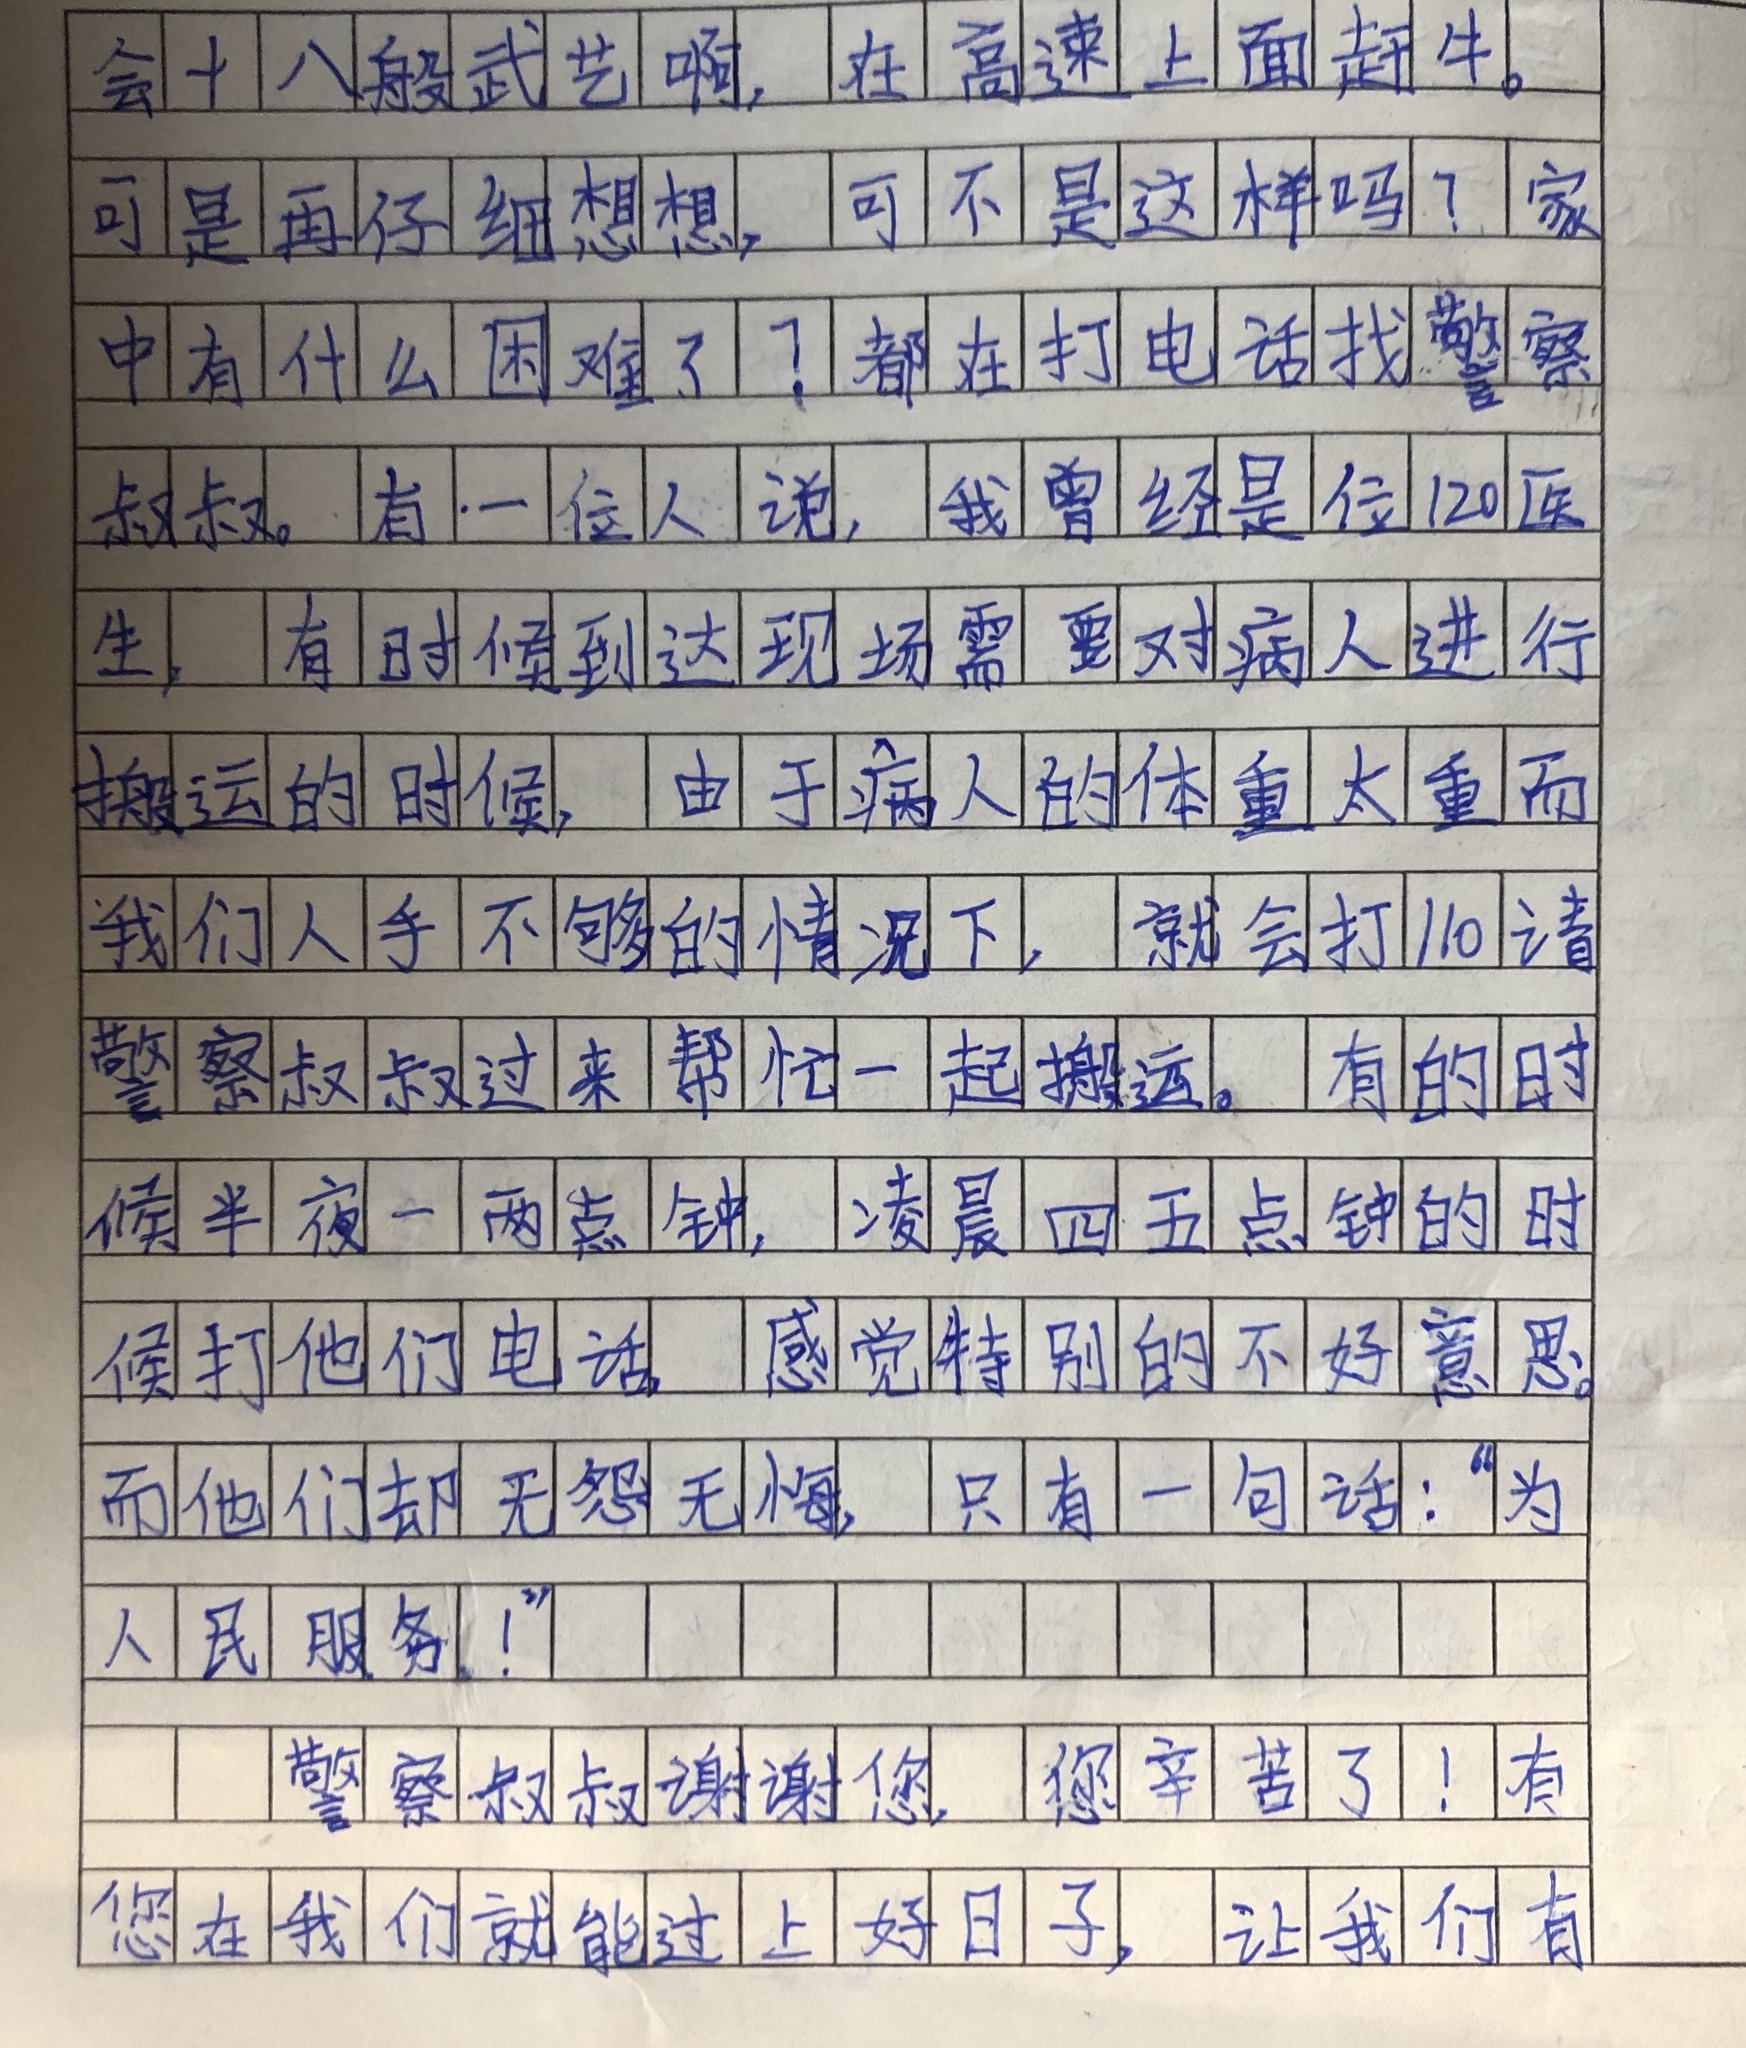 会十八般武艺啊，在高速上面赶牛。
可是再仔细想想，可不是这样吗？家
中有什么困难了？都在打电话找警察
叔叔。有一位人说，我曾经是位120医
生，有时候到达现场需要对病人进行
搬运的时候，由于病人的体重太重而
我们人手不够的情况下，就会打110请
警察叔叔过来帮忙一起搬运。有的时
候半夜一两点钟，凌晨四五点钟的时
候打他们电话，感觉特别的不好意思。
而他们却无怨无悔，只有一句话：“为
人民服务！”
警察叔叔谢谢您，您辛苦了！有
您在我们就能过上好日子，让我们有